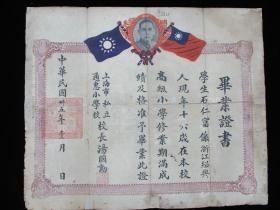 畢業證書
學生石仁富係浙江紹興
人現年十六歲在本校
高級小學修業期滿成
績及格准予畢業此證
上海市私立
通惠小學校
校長湯國勳
中華民國卅五年 月 日